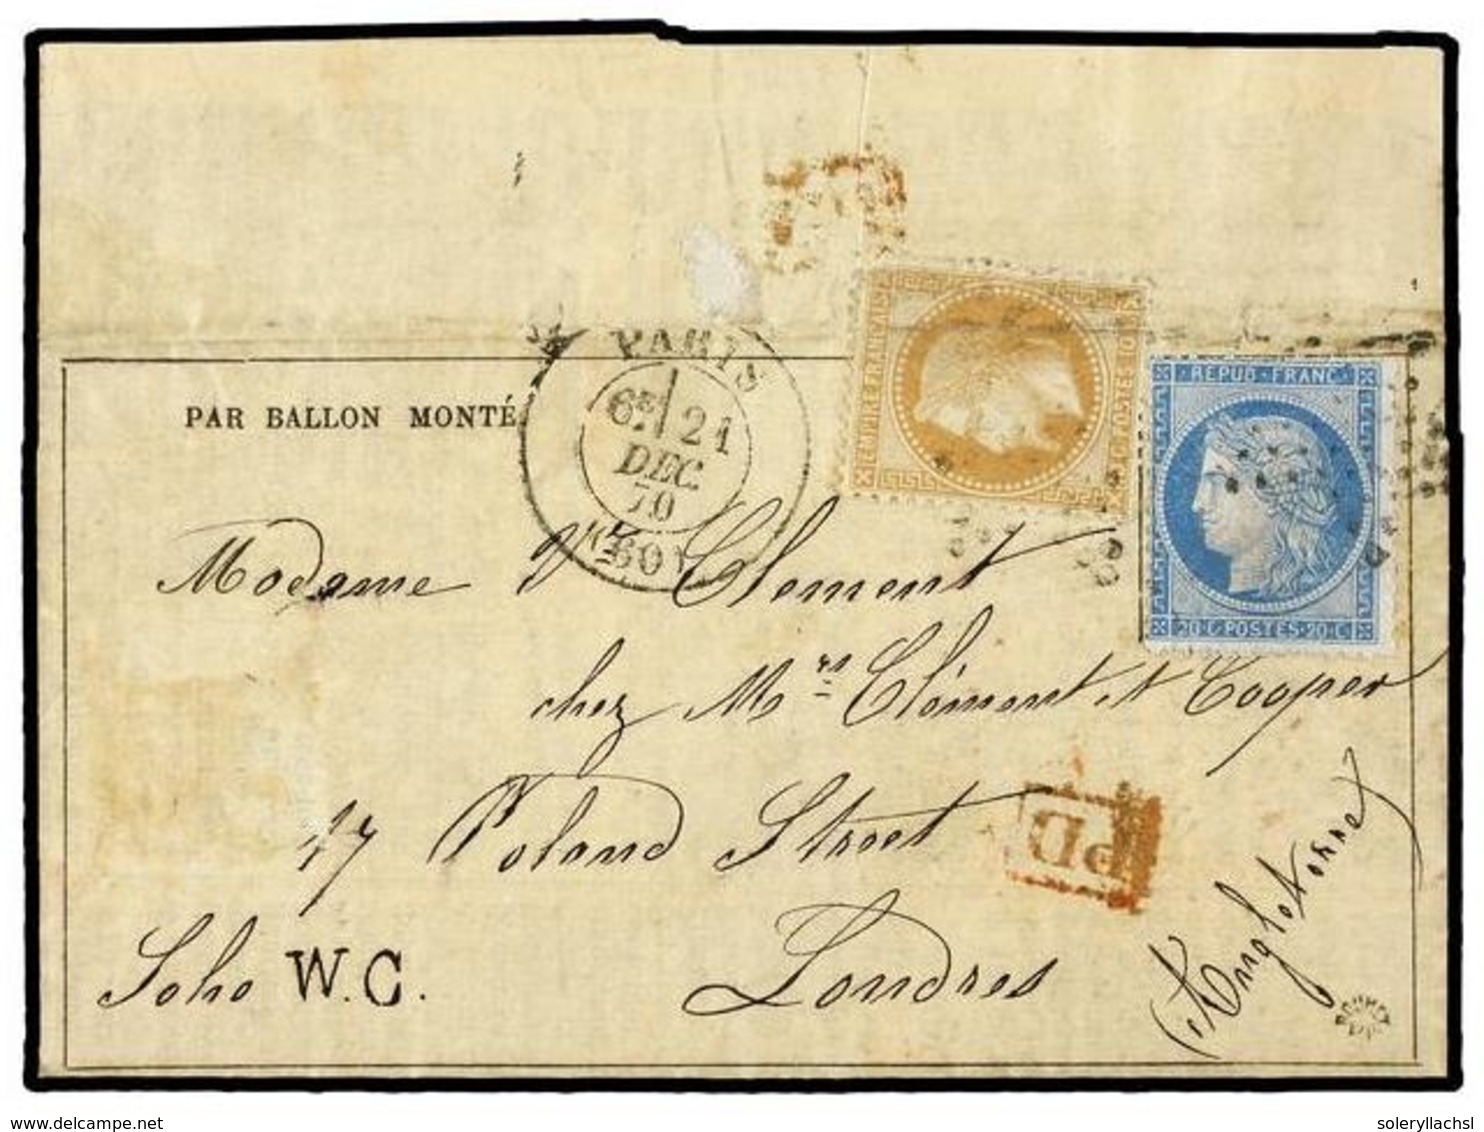 PARIS
6E 21
DEC.
70
(60)
PAR BALLON MONTÉ
EMPIRE FRANÇAIS
REPUB·FRANC.
20·C·POSTES·20·C
Madame Vve Clement
chez Mrs Clément et Cooper
17 Poland Street
PD
Soho W.C.
Londres
(Angleterre)
www.delcampe.net
soleryllachsl